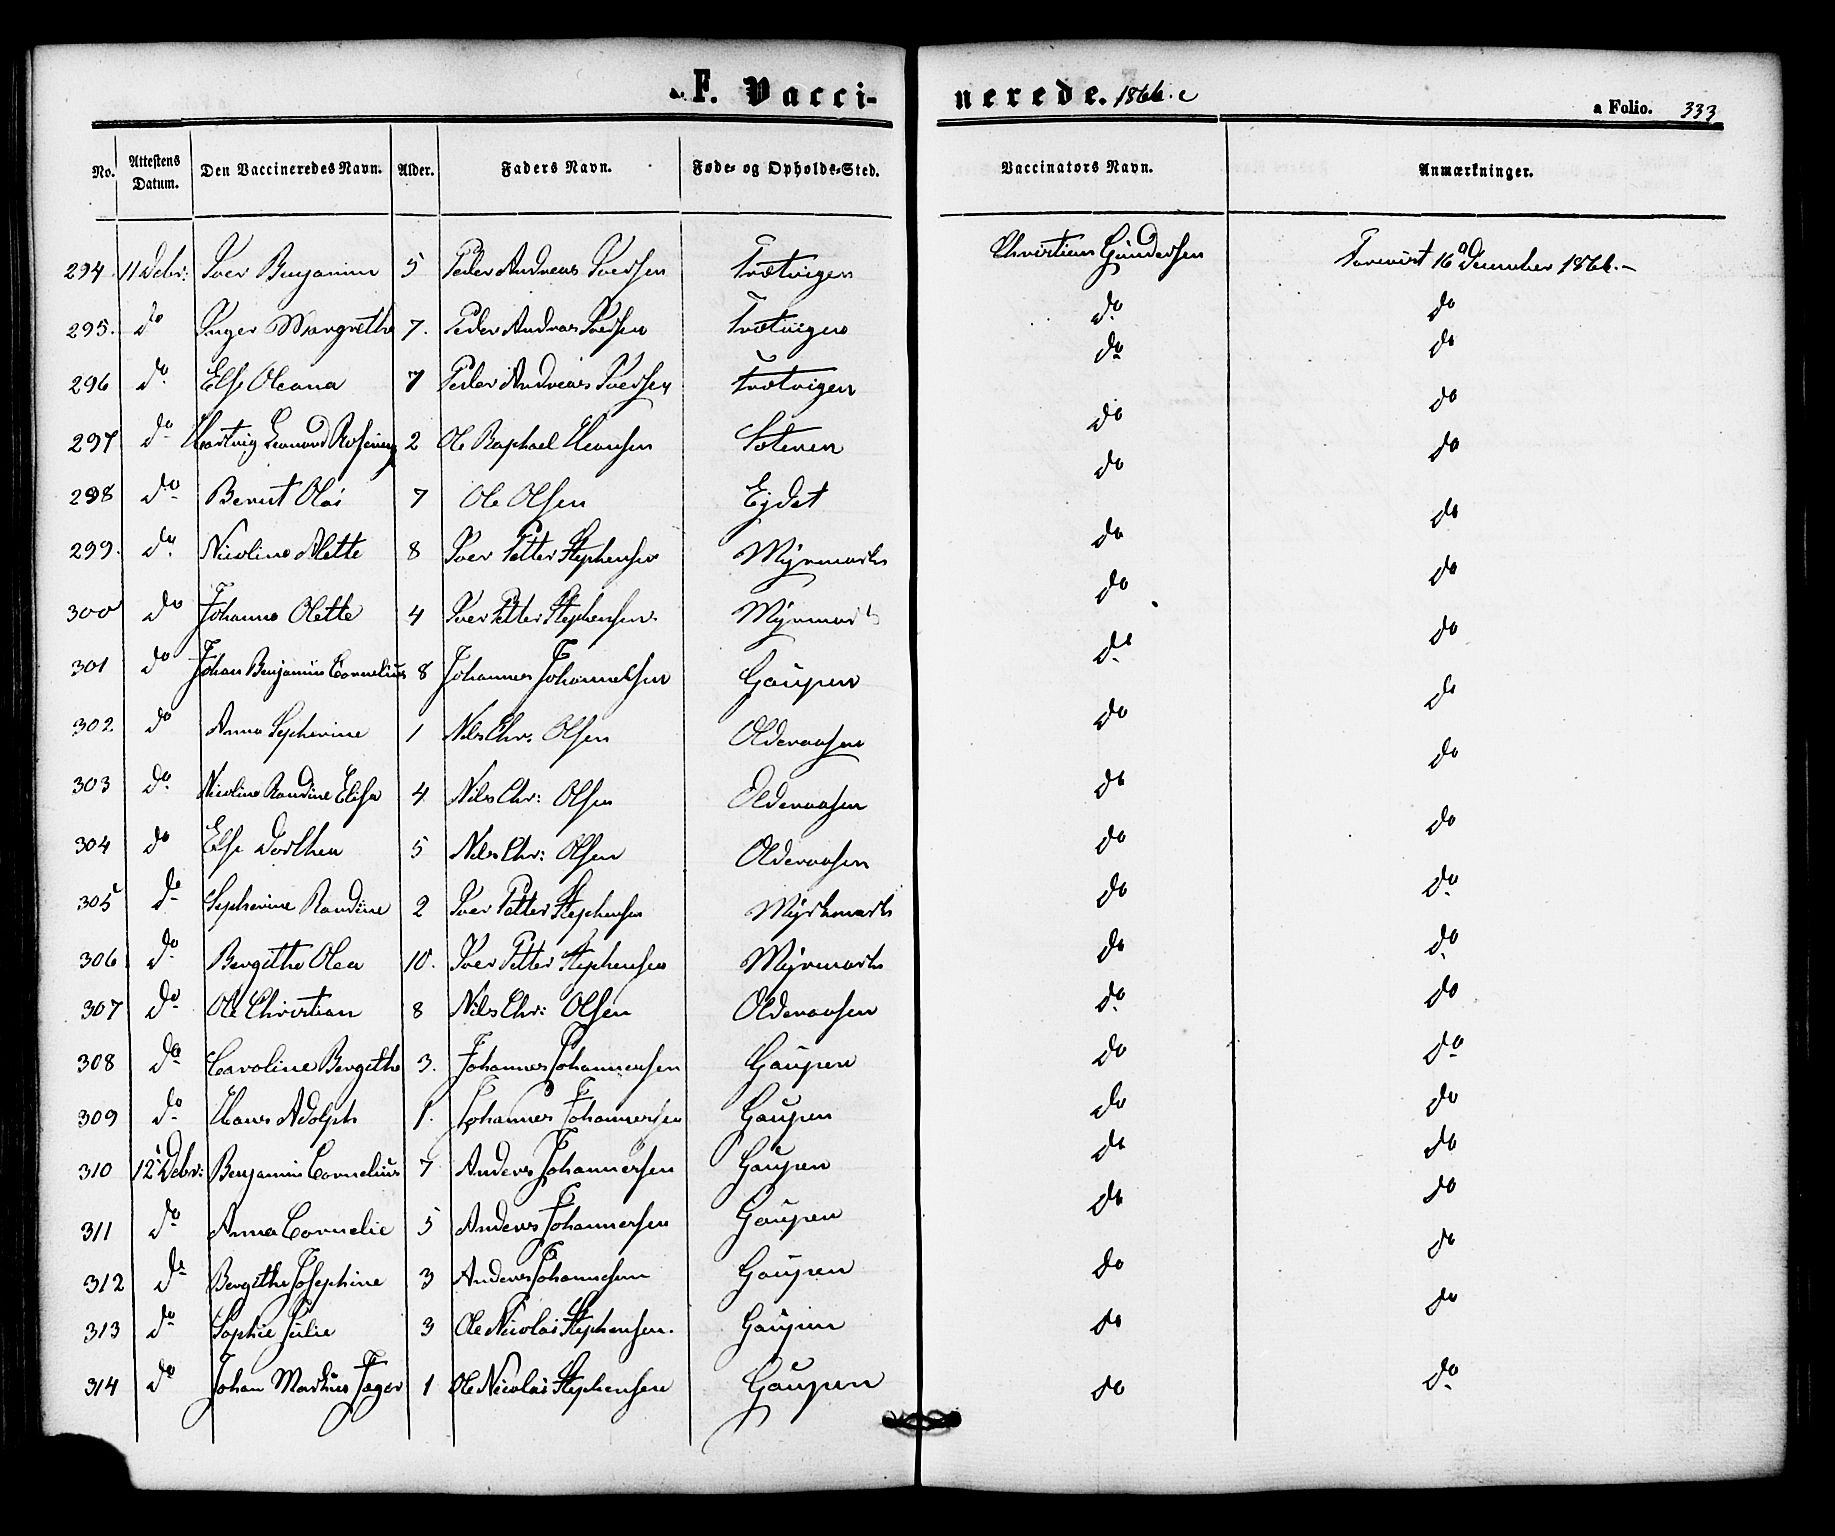 F. Vaccinerede. 1866.
a Folio. 333
No. | Attestens Datum. | Den Vaccineredes Navn. | Alder. | Faders Navn. | Føde- og Opholds-Sted. | Vaccinators Navn. | Anmærkninger.
294 | 11 Debr: | Iver Benjamin | 5 | Peder Andreas Iversen | Trætvigen | Christian Gundersen | Forevist 16 December 1866.
295. | do | Inger Margrethe | 7. | Peder Andreas Iversen | Trætvigen | do | do
296 | do | Else Oleana | 7 | Peder Andreas Iversen | Trætvigen | do | do
297 | do | Hartvig Leonard | 2 | Ole Raphael Hansen | Soteren | do | do
298 | do | Bernt Olai | 7 | Ole Olsen | Ejdet | do | do
299. | do | Nicoline Alette | 8 | Iver Petter Stephensen | Myrmark | do | do
300 | do | Johanne Olette | 4 | Iver Petter Stephensen | Myrmark | do | do
301 | do | Johan Benjamin Cornelius | 8 | Johannes Johannessen | Gaupen | do | do
302 | do | Anna Sepherine | 1 | Nils Chr: Olsen | Olderaasen | do | do
303 | do | Nicoline Randine Elisa | 4 | Nils Chr: Olsen | Olderaasen | do | do
304 | do | Else Dorthea | 5 | Nils Chr: Olsen | Olderaasen | do | do
305 | do | Sepherine Randine | 2 | Iver Petter Stephensen | Myrkmark | do | do
306 | do | Bergithe Olea | 10. | Iver Petter Stephensen | Myrmark | do | do
307 | do | Ole Christian | 8 | Nils Chr: Olsen | Olderaasen | do | do
308 | do | Caroline Bergithe | 3. | Johannes Johannessen | Gaupen | do | do
309 | do | Hans Adolph | 1. | Johannes Johannessen | Gaupen | do | do
310 | 12 Debr: | Benjamin Cornelius | 7 | Anders Johannessen | Gaupen | do | do
311 | do | Anna Cornelie | 5 | Anders Johannessen | Gaupen | do | do
312 | do | Bergithe Josephine | 3 | Anders Johannesen | Gaupen | do | do
313 | do | Sophie Julie | 3 | Ole Nicolai Stephensen. | Gaupen | do | do
314 | do | Johan Markus Jæger | 1 | Ole Nicolai Stephensen | Gaupen | do | do